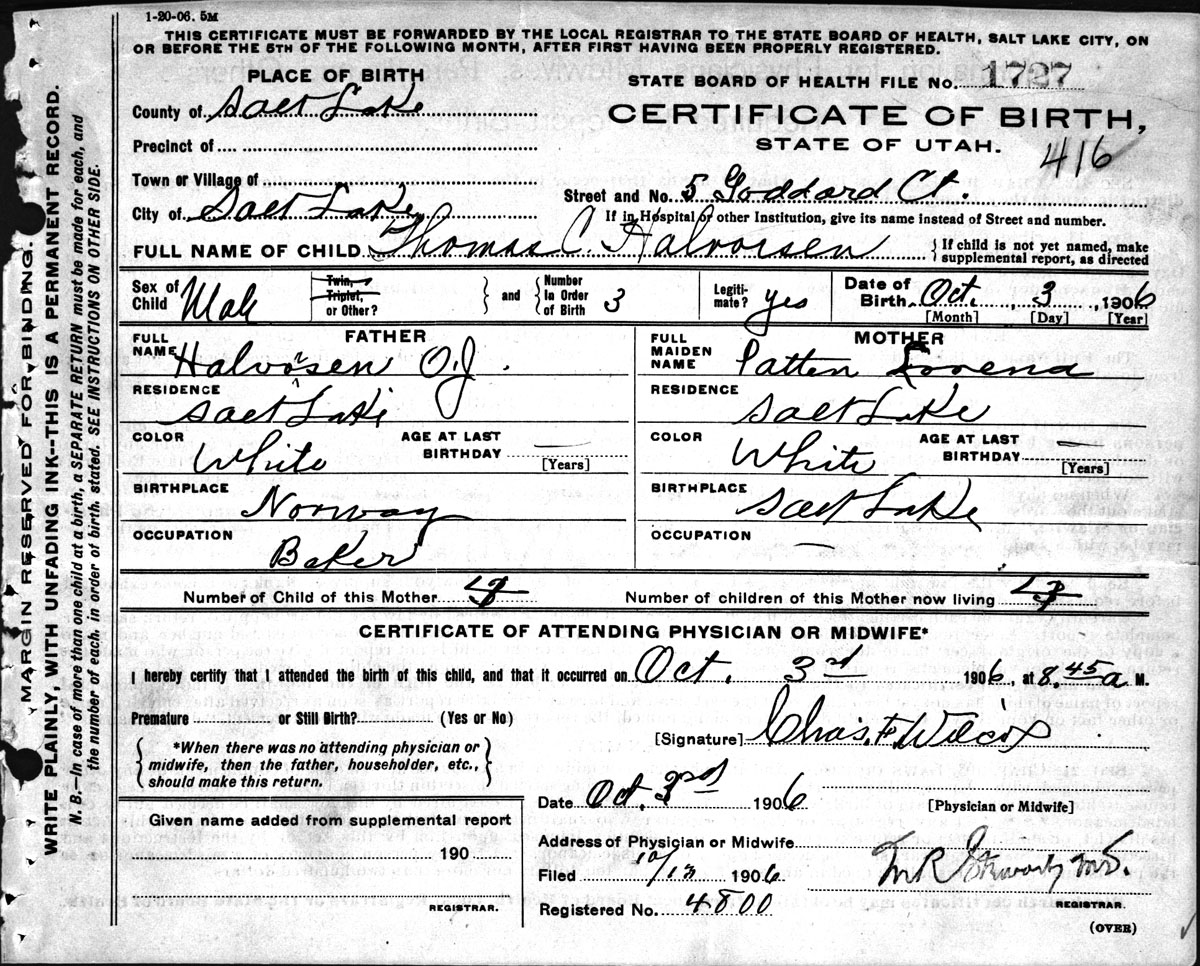 1-20-06. 5M
THIS CERTIFICATE MUST BE FORWARDED BY THE LOCAL REGISTRAR TO THE STATE BOARD OF HEALTH, SALT LAKE CITY, ON
OR BEFORE THE 5TH OF THE FOLLOWING MONTH, AFTER FIRST HAVING BEEN PROPERLY REGISTERED.
MARGIN RESERVED FOR BINDING.
WRITE PLAINLY, WITH UNFADING INK--THIS IS A PERMANENT RECORD.
N. B.—In case of more than one child at a birth, a SEPARATE RETURN must be made for each, and
the number of each, in order of birth, stated. SEE INSTRUCTIONS ON OTHER SIDE.
PLACE OF BIRTH
County of Salt Lake
Precinct of
Town or Village of
City of Salt Lake
STATE BOARD OF HEALTH FILE No. 1727
CERTIFICATE OF BIRTH,
STATE OF UTAH.
416
Street and No. 5 Goddard Ct.
If in Hospital or other Institution, give its name instead of Street and number.
FULL NAME OF CHILD Thomas C. Halvorsen
If child is not yet named, make
supplemental report, as directed
Sex of Child Male
Twin, Triplet, or Other?
and Number in Order of Birth 3
Legitimate? yes
Date of Birth Oct. 3, 1906
[Month] [Day] [Year]
FATHER
FULL NAME Halvorsen O.J.
RESIDENCE Salt Lake
COLOR White
AGE AT LAST BIRTHDAY
[Years]
BIRTHPLACE Norway
OCCUPATION Baker
MOTHER
FULL MAIDEN NAME Patten Lovena
RESIDENCE Salt Lake
COLOR White
AGE AT LAST BIRTHDAY
[Years]
BIRTHPLACE Salt Lake
OCCUPATION —
Number of Child of this Mother
Number of children of this Mother now living
CERTIFICATE OF ATTENDING PHYSICIAN OR MIDWIFE*
I hereby certify that I attended the birth of this child, and that it occurred on Oct. 3rd 1906, at 8.45 a M.
Premature or Still Birth? (Yes or No)
*When there was no attending physician or
midwife, then the father, householder, etc.,
should make this return.
[Signature] Chas. F. Wilcox
Date Oct. 3rd 1906
[Physician or Midwife]
Given name added from supplemental report
190
REGISTRAR.
Address of Physician or Midwife
Filed 10/13 1906
Registered No. 4800
REGISTRAR.
(OVER)